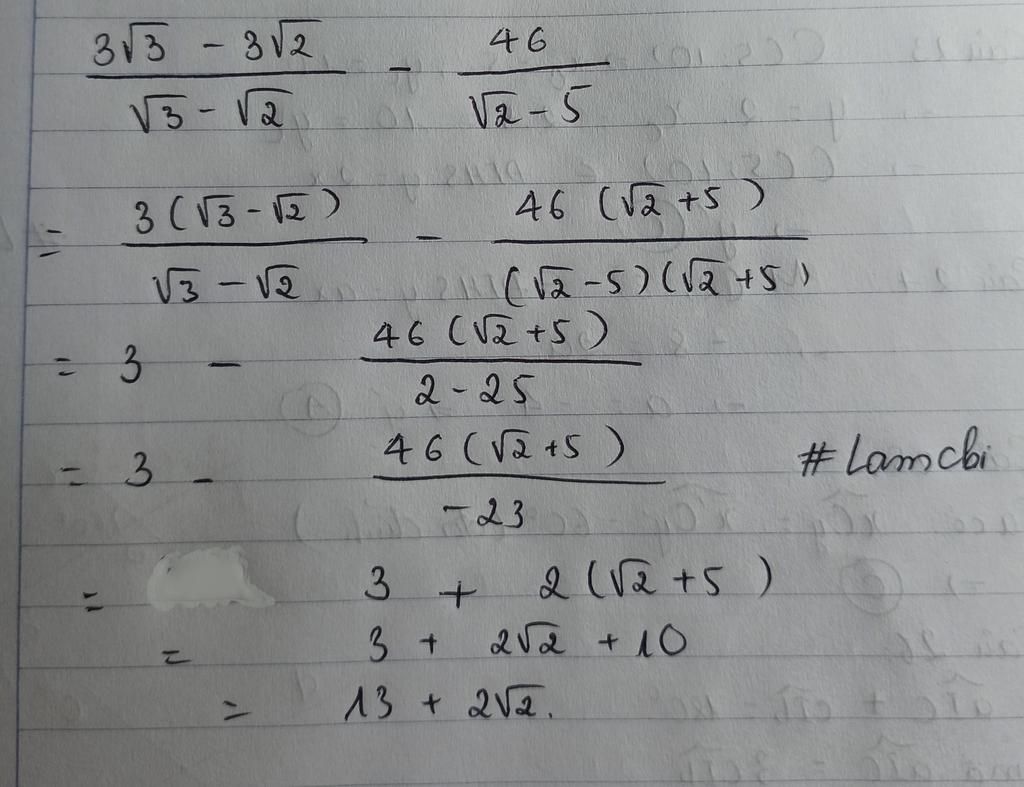 (3√3 - 3√2)/(√3 - √2) - 46/(√2 - 5)
= 3(√3 - √2)/(√3 - √2) - 46(√2 + 5)/((√2 - 5)(√2 + 5))
= 3 - 46(√2 + 5)/(2 - 25)
= 3 - 46(√2 + 5)/(-23)
#Lamcbi
= 3 + 2(√2 + 5)
= 3 + 2√2 + 10
= 13 + 2√2.